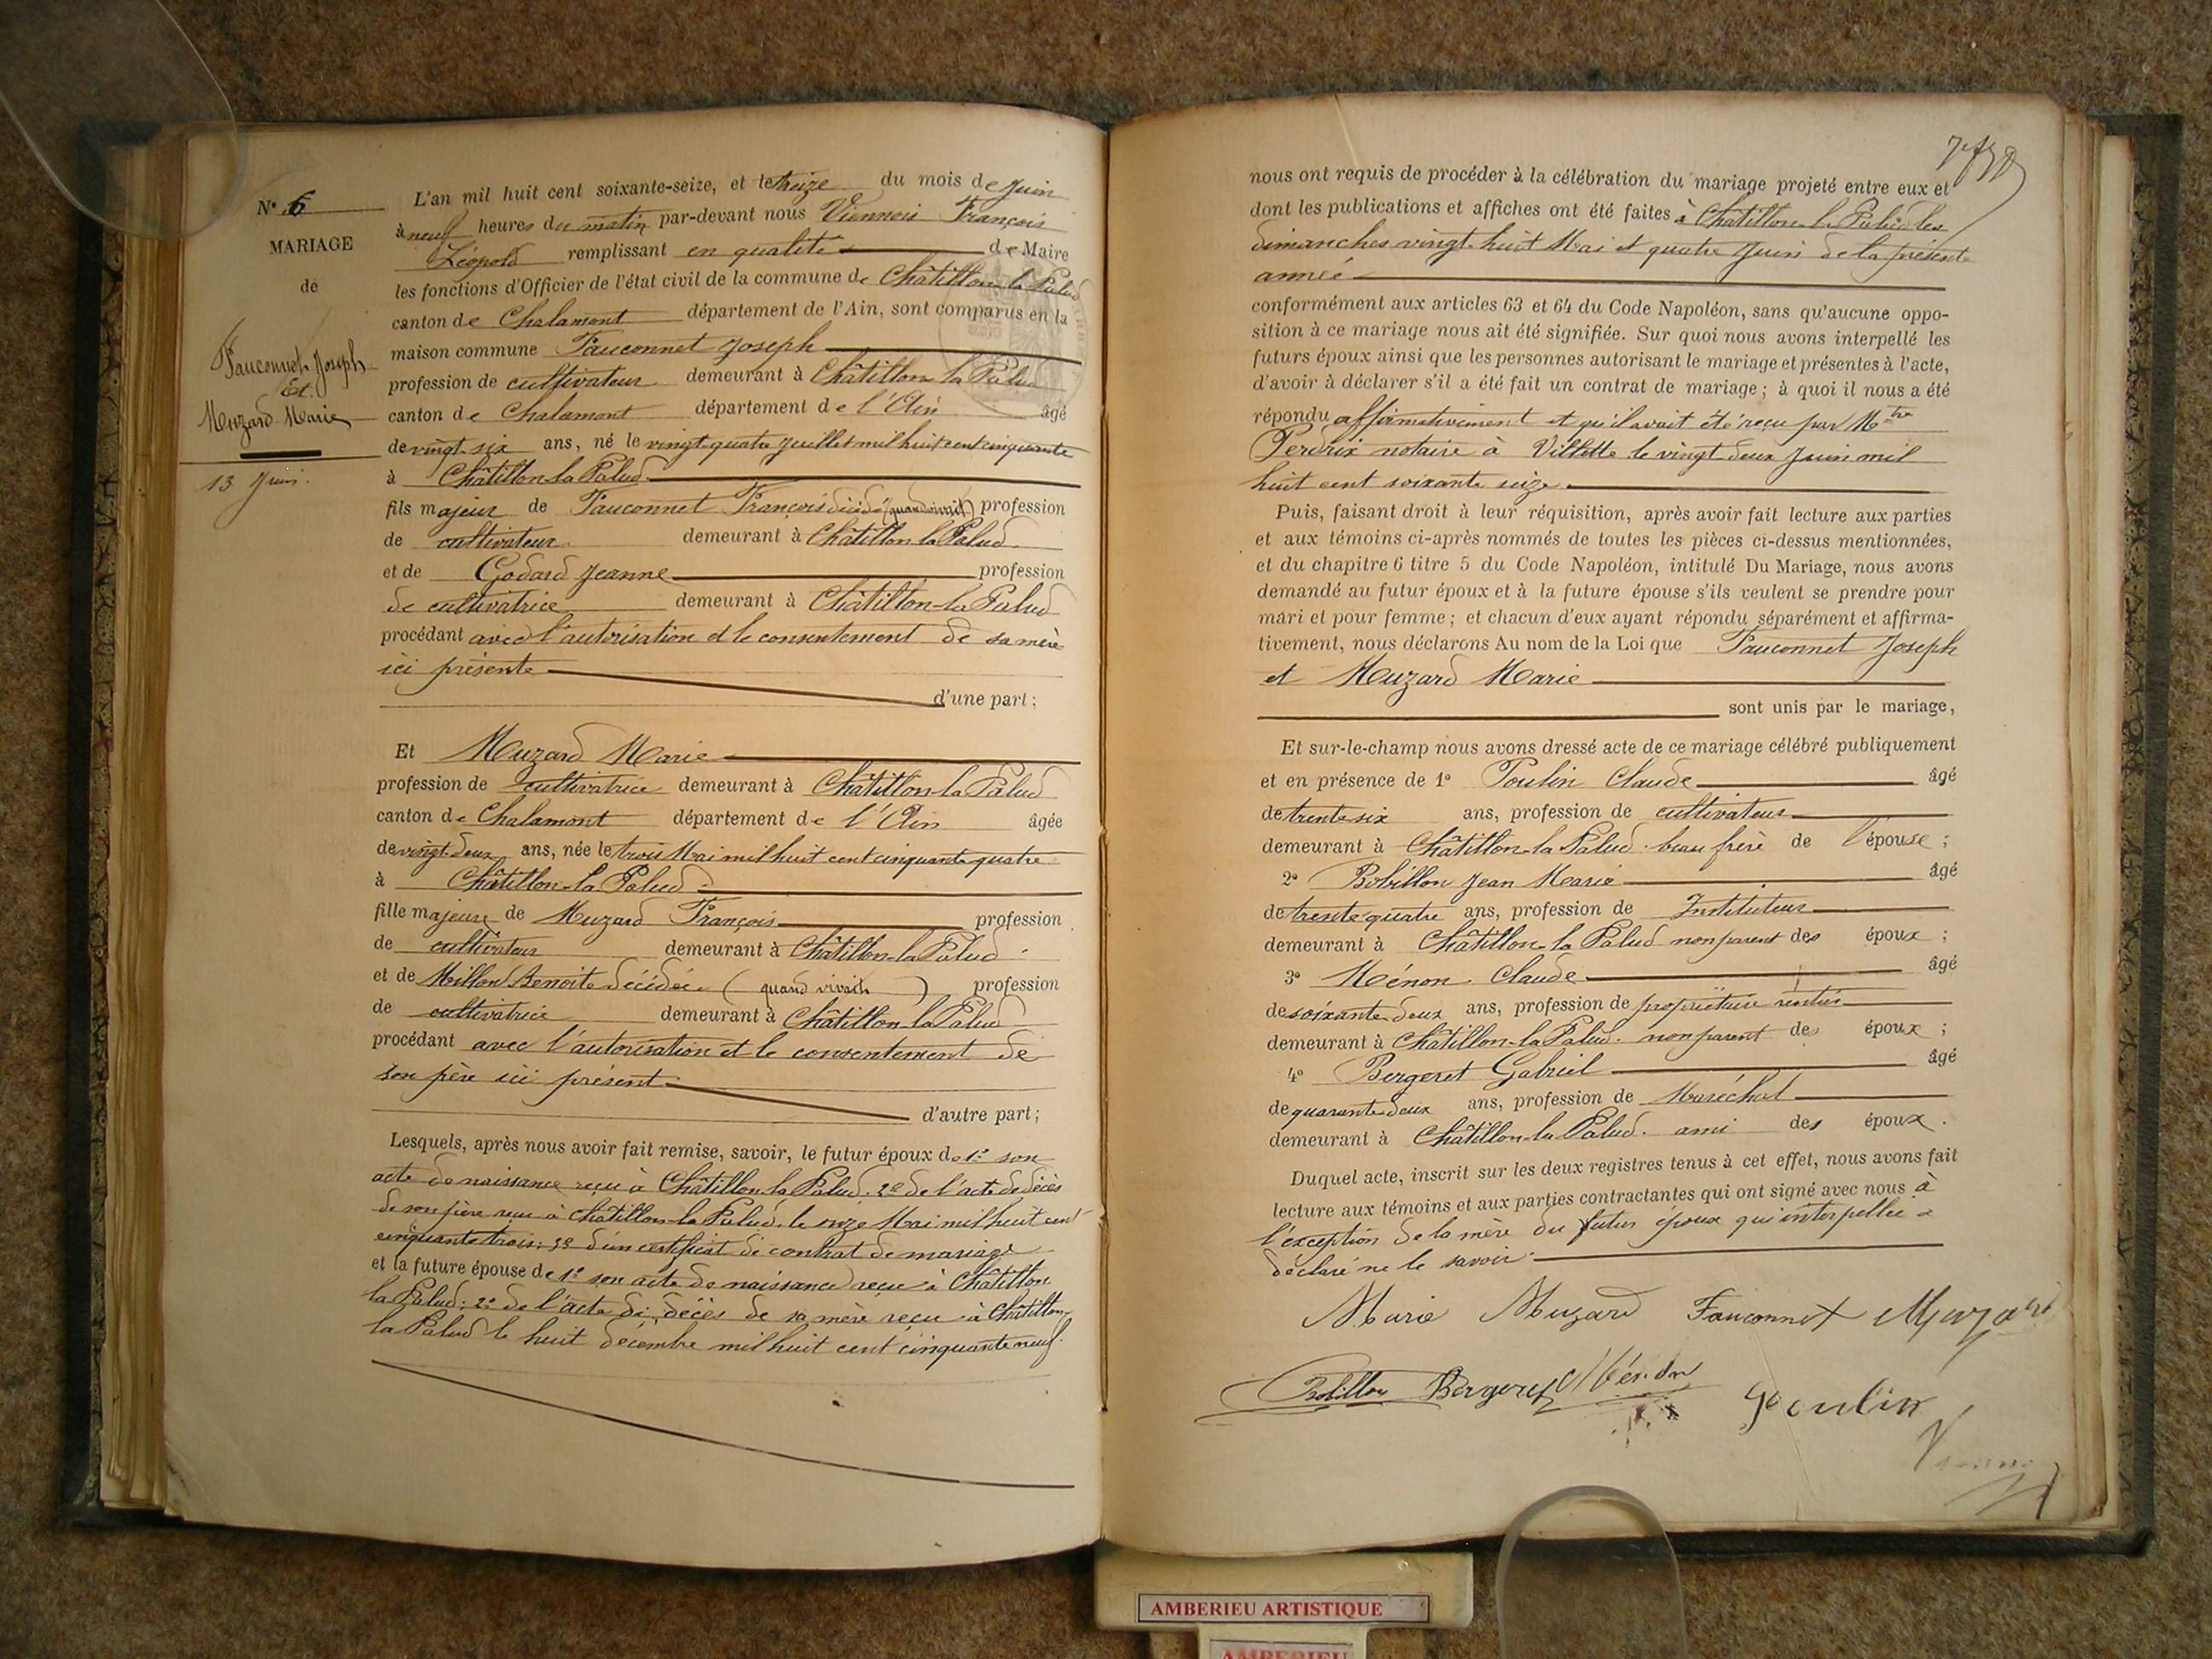 N° 6
MARIAGE
de
Fauconnet Joseph
Et
Muzard Marie
13 Juin.
L'an mil huit cent soixante-seize, et le treize du mois de Juin
à neuf heures du matin par-devant nous Viennois François
Léopold remplissant en qualité de Maire
les fonctions d'Officier de l'état civil de la commune de Châtillon-la-Palud
canton de Chalamont département de l'Ain, sont comparus en la
maison commune Fauconnet Joseph
profession de cultivateur demeurant à Châtillon-la-Palud
canton de Chalamont département de l'Ain âgé
de vingt-six ans, né le vingt-quatre Juillet mil huit cent cinquante
à Châtillon-la-Palud
fils majeur de Fauconnet François décédé (quand vivait) profession
de cultivateur demeurant à Châtillon-la-Palud
et de Godard Jeanne profession
de cultivatrice demeurant à Châtillon-la-Palud
procédant avec l'autorisation et le consentement de sa mère
ici présente
d'une part;
Et Muzard Marie
profession de cultivatrice demeurant à Châtillon-la-Palud
canton de Chalamont département de l'Ain âgée
de vingt-deux ans, née le trois Mai mil huit cent cinquante quatre
à Châtillon-la-Palud
fille majeure de Muzard François profession
de cultivateur demeurant à Châtillon-la-Palud
et de Millon Benoite décédée (quand vivait) profession
de cultivatrice demeurant à Châtillon-la-Palud
procédant avec l'autorisation et le consentement de
son père ici présent
d'autre part;
Lesquels, après nous avoir fait remise, savoir, le futur époux de 1° son
acte de naissance reçu à Châtillon-la-Palud. 2° de l'acte de décès
de son père reçu à Châtillon-la-Palud, le onze Mai mil huit cent
cinquante trois; 3° d'un certificat de contrat de mariage
et la future épouse de 1° son acte de naissance reçu à Châtillon
la Palud; 2° de l'acte de décès de sa mère reçu à Châtillon-
la Palud le huit décembre mil huit cent cinquante neuf.
nous ont requis de procéder à la célébration du mariage projeté entre eux et
dont les publications et affiches ont été faites à Châtillon-la-Palud les
dimanches vingt-huit Mai et quatre Juin de la présente
année
conformément aux articles 63 et 64 du Code Napoléon, sans qu'aucune oppo-
sition à ce mariage nous ait été signifiée. Sur quoi nous avons interpellé les
futurs époux ainsi que les personnes autorisant le mariage et présentes à l'acte,
d'avoir à déclarer s'il a été fait un contrat de mariage; à quoi il nous a été
répondu affirmativement et qu'il avait été reçu par Mtre
Perdrix notaire à Villette le vingt deux Juin mil
huit cent soixante seize.
Puis, faisant droit à leur réquisition, après avoir fait lecture aux parties
et aux témoins ci-après nommés de toutes les pièces ci-dessus mentionnées,
et du chapitre 6 titre 5 du Code Napoléon, intitulé Du Mariage, nous avons
demandé au futur époux et à la future épouse s'ils veulent se prendre pour
mari et pour femme; et chacun d'eux ayant répondu séparément et affirma-
tivement, nous déclarons Au nom de la Loi que Fauconnet Joseph
et Muzard Marie
sont unis par le mariage,
Et sur-le-champ nous avons dressé acte de ce mariage célébré publiquement
et en présence de 1° Poulin Claude âgé
de trente six ans, profession de cultivateur
demeurant à Châtillon-la-Palud. beau frère de l'épouse;
2° Bobillon Jean Marie âgé
de trente quatre ans, profession de Instituteur
demeurant à Châtillon-la-Palud non parent des époux;
3° Ménon Claude âgé
de soixante-deux ans, profession de propriétaire rentier
demeurant à Châtillon-la-Palud. non parent des époux;
4° Bergeret Gabriel âgé
de quarante-deux ans, profession de Maréchal
demeurant à Châtillon-la-Palud. ami des époux.
Duquel acte, inscrit sur les deux registres tenus à cet effet, nous avons fait
lecture aux témoins et aux parties contractantes qui ont signé avec nous à
l'exception de la mère du futur époux qui interpellée a
déclaré ne le savoir.
Marie Muzard Fauconnet Muzard
Bobillon Bergeret Ménon Poulin
AMBERIEU ARTISTIQUE
AMBERIEU